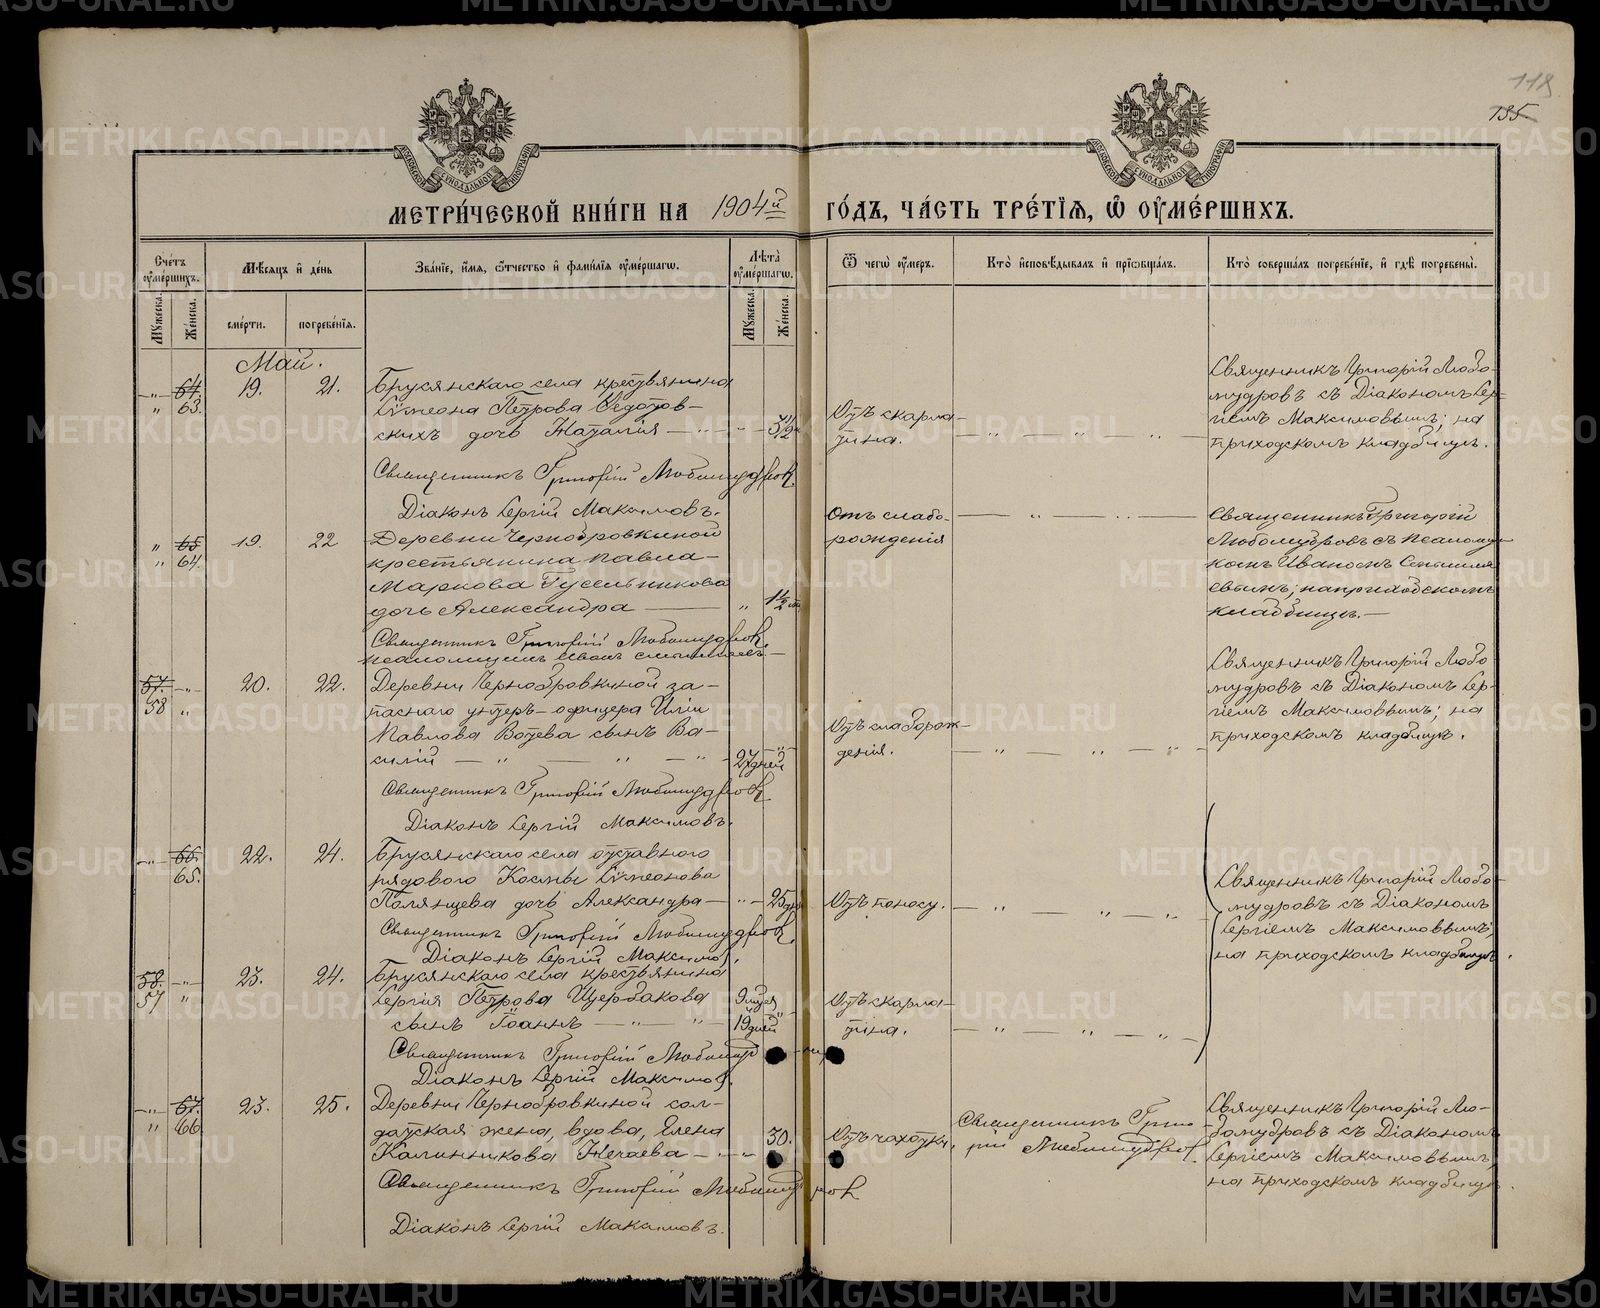 118
135
МЕТРИ́ЧЕСКОЙ КНИ́ГИ НА 1904й ГО́ДЪ, ЧА́СТЬ ТРЕ́ТІѦ, Ѡ ОУМЕ́РШИХЪ.
Сче́тъ оуме́ршихъ.
Мꙋжеска.
Же́нска.
Мѣсѧцъ и де́нь
сме́рти.
погребе́нїѧ.
Зва́нїе, и́мѧ, ѻ҆́тчество и фами́лїѧ оуме́ршагѡ.
Лѣта̀ оуме́ршагѡ.
Мꙋжеска.
Же́нска.
Ѿ чегѡ̀ оу́меръ.
Кто̀ и҆сповѣ́дывалъ и прїѡбща́лъ.
Кто̀ соверша́лъ погребе́нїе, и гдѣ̀ погребены̀.
Май.
-"- 64. 19. 21. Брусянскаго села крестьянина
" 63. Сѵмеона Петрова Федотов-
скихъ дочь Наталія - " - " - 3½
Отъ скарла-
тина. - " - " - " -
Священникъ Григорій Любо-
мудровъ съ Діакономъ Сер-
гіемъ Максимовымъ; на
приходскомъ кладбищѣ.
Священникъ Григорій Любомудровъ.
Діаконъ Сергій Максимовъ.
" 65 19. 22 Деревни Чернобровкиной
" 64. крестьянина Павла
Маркова Гусельникова
дочь Александра — " 1½ м.
Отъ слабо-
рожденія
Священникъ Григорій
Любомудровъ съ Псаломщи-
комъ Иваномъ
; на приходскомъ
кладбищѣ.—
Священникъ Григорій Любомудровъ.
Псаломщикъ Иванъ
57. -"- 20. 22. Деревни Чернобровкиной за-
58 " паснаго унтеръ-офицера Иліи
Павлова Вотева сынъ Ва-
силій - " - " - " - 27 дней "
Отъ слаборож-
денія. - " - " - " -
Священникъ Григорій Любо-
мудровъ съ Діакономъ Сер-
гіемъ Максимовымъ; на
приходскомъ кладбищѣ.
Священникъ Григорій Любомудровъ
Діаконъ Сергій Максимовъ.
-"- 66. 22. 24. Брусянскаго села отставного
65. рядового Космы Сѵмеонова
Полянцева дочь Александра - " - 25 дн.
Отъ поносу. - " - " - " -
Священникъ Григорій Любо-
мудровъ съ Діакономъ
Сергіемъ Максимовымъ;
на приходскомъ кладбищѣ.
Священникъ Григорій Любомудровъ.
Діаконъ Сергій Максимовъ.
58. -"- 23. 24. Брусянскаго села крестьянина
57 " Сергія Петрова Щербакова
сынъ Іоаннъ - " - " - 9 мѣсяц. 19 дней "
Отъ скарла-
тина. - " - " - " -
Священникъ Григорій Любомудровъ
Діаконъ Сергій Максимовъ.
-"- 67. 23. 25. Деревни Чернобровкиной сол-
" 66 датская жена, вдова, Елена
Калинникова Нечаева - " - 30.
Отъ чахотки.
Священникъ Григо-
рій Любомудровъ.
Священникъ Григорій Лю-
бомудровъ съ Діакономъ
Сергіемъ Максимовымъ,
на приходскомъ кладбищѣ.
Священникъ Григорій Любомудровъ
Діаконъ Сергій Максимовъ.